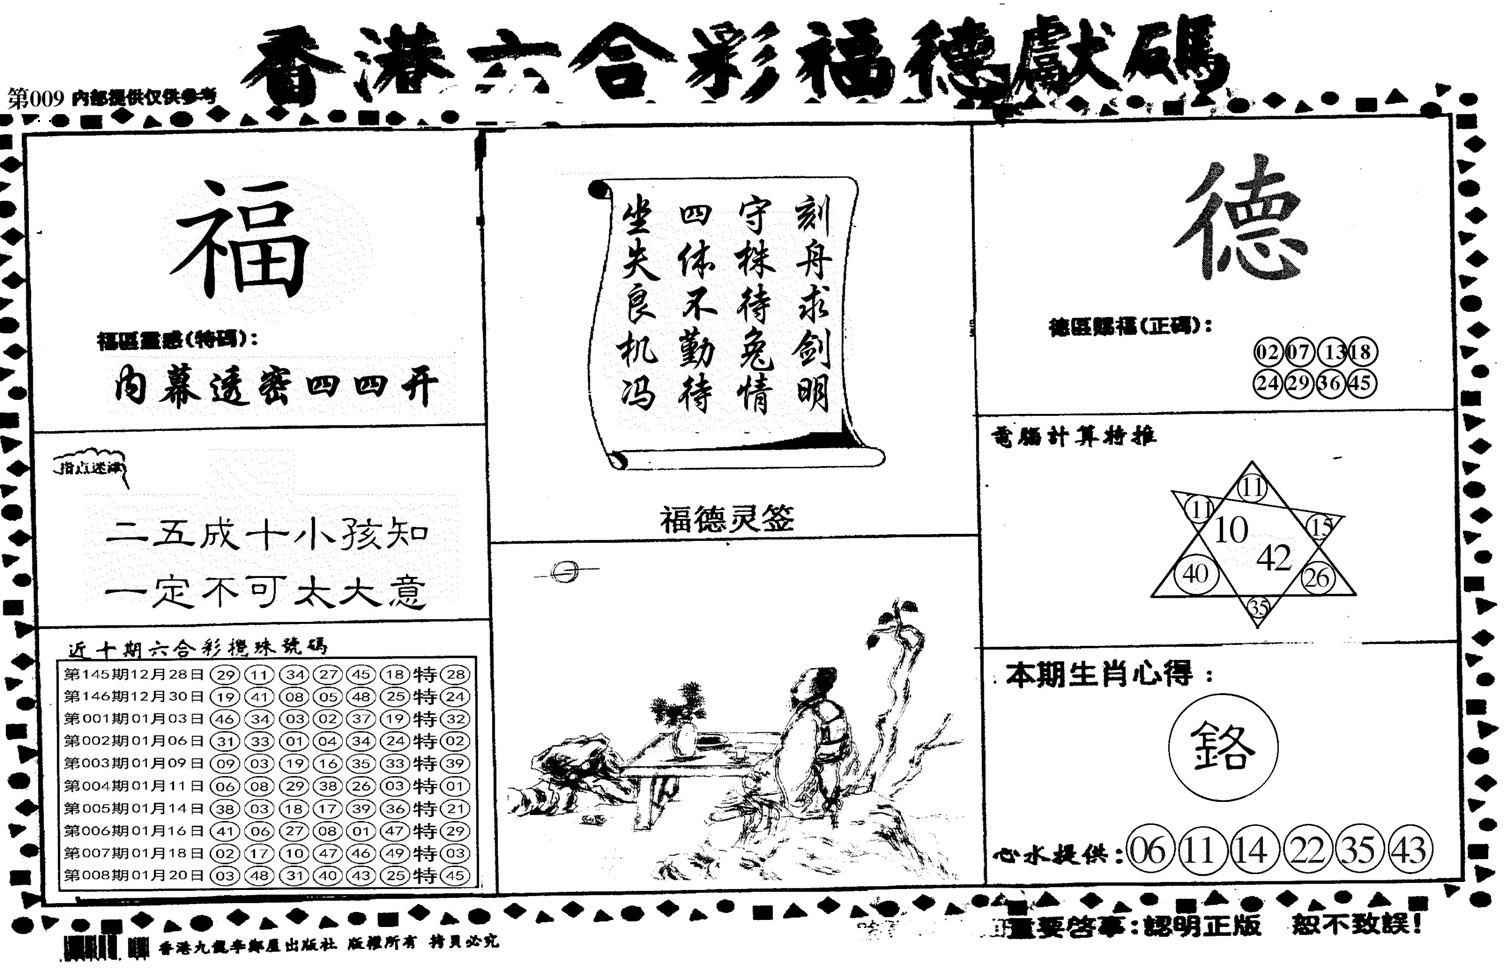 香港六合彩福德獻碼
第009 內部提供仅供参考
福
福區靈感(特碼):
內幕透密四四开
指点迷津
二五成十小孩知
一定不可太大意
近十期六合彩攪珠號碼
第145期12月28日 29 11 34 27 45 18 特 28
第146期12月30日 19 41 08 05 48 25 特 24
第001期01月03日 46 34 03 02 37 19 特 32
第002期01月06日 31 33 01 04 34 24 特 02
第003期01月09日 09 03 19 16 35 33 特 39
第004期01月11日 06 08 29 38 26 03 特 01
第005期01月14日 38 03 18 17 39 36 特 21
第006期01月16日 41 06 27 08 01 47 特 29
第007期01月18日 02 17 10 47 46 49 特 03
第008期01月20日 03 48 31 40 43 25 特 45
刻舟求剑明
守株待兔情
四体不勤待
坐失良机冯
福德灵签
德
德區賜福(正碼):
02 07 13 18
24 29 36 45
電腦計算特推
11
11 15
10
42
40 26
35
本期生肖心得:
鉻
心水提供:06 11 14 22 35 43
香港九龍李鄭屋出版社 版權所有 拷貝必究
重要啓事:認明正版 恕不致誤!